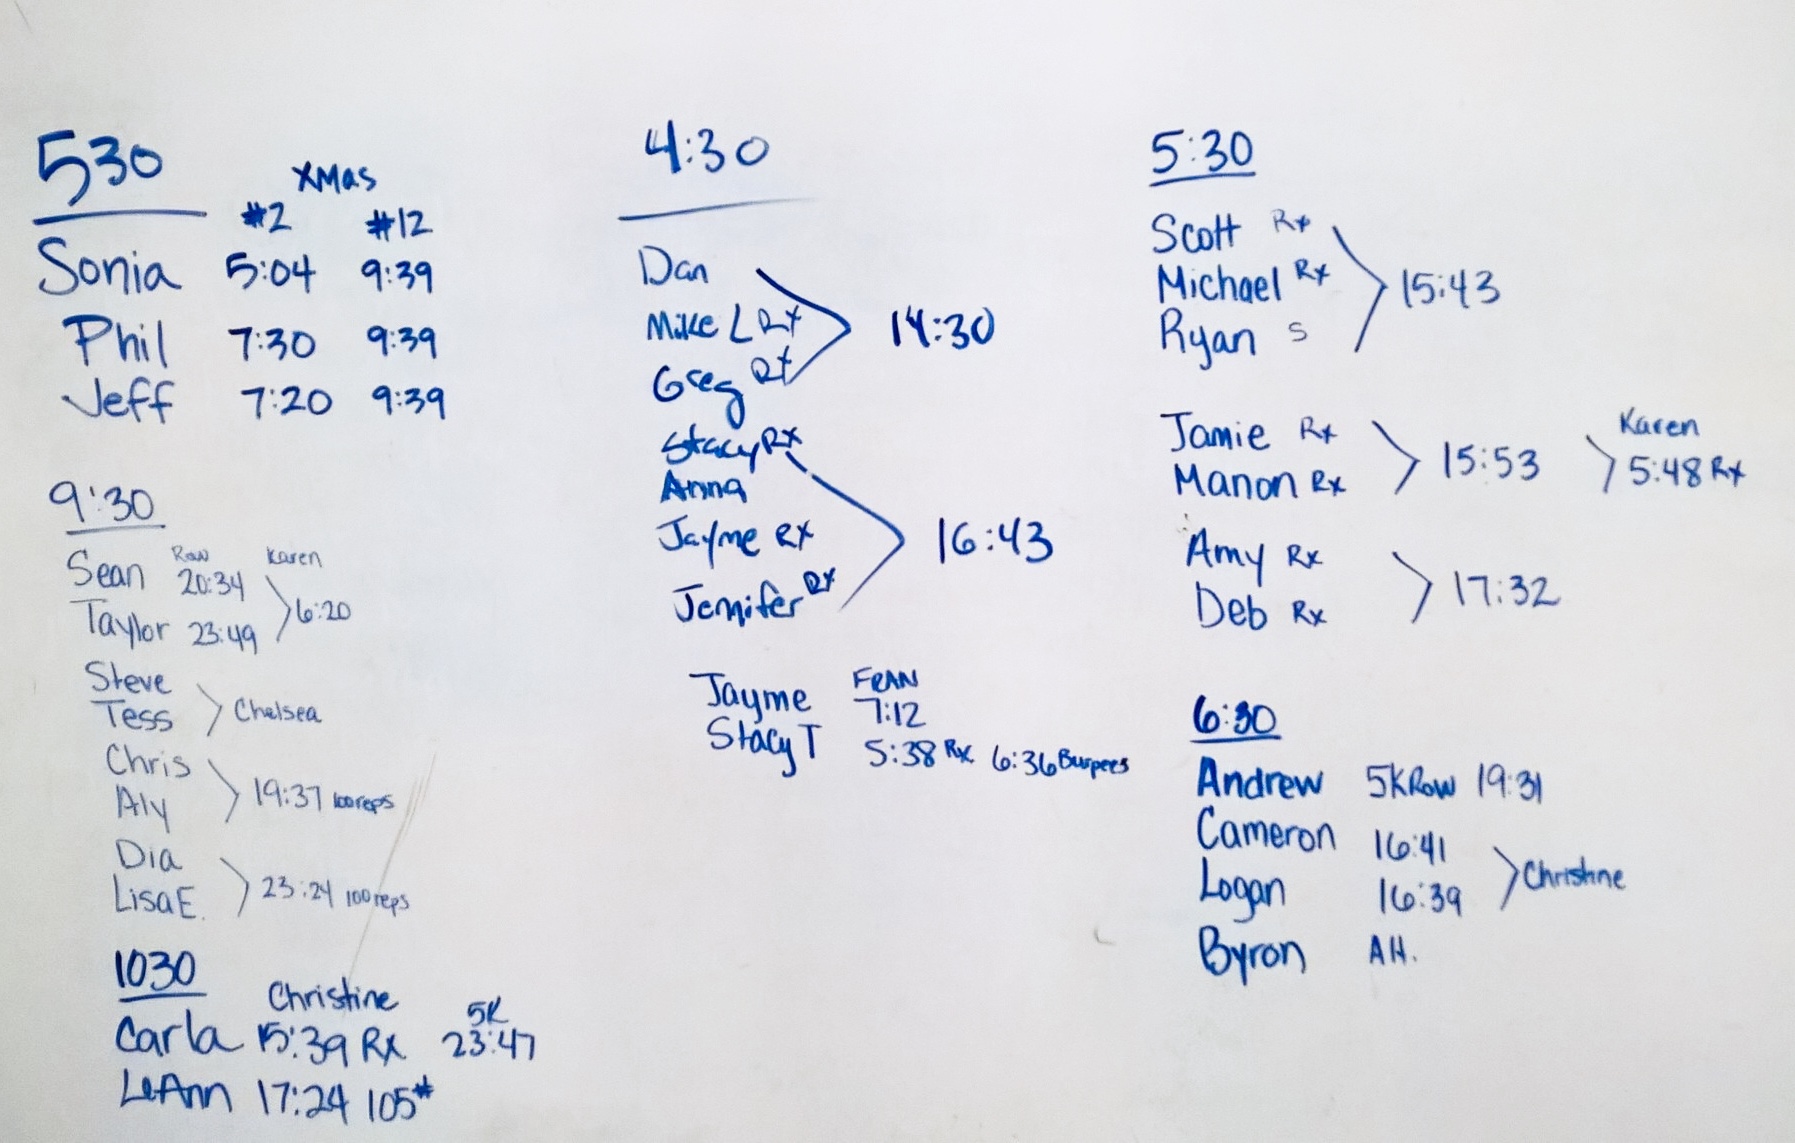 530
XMas
#2 #12
Sonia 5:04 9:39
Phil 7:30 9:39
Jeff 7:20 9:39
9:30
Row Karen
Sean 20:34
Taylor 23:49 6:20
Steve
Tess Chelsea
Chris
Aly 19:37 100 reps
Dia
Lisa E. 23:24 100 reps
1030
Christine 5K
Carla 15:39 Rx 23:47
LeAnn 17:24 105#
4:30
Dan
Mike L Rx 14:30
Greg Rx
Stacy Rx
Anna
Jayme Rx 16:43
Jennifer Rx
FRAN
Jayme 7:12
Stacy T 5:38 Rx 6:36 Burpees
5:30
Scott Rx
Michael Rx 15:43
Ryan S
Karen
Jamie Rx
Manon Rx 15:53 5:48 Rx
Amy Rx
Deb Rx 17:32
6:30
Andrew 5K Row 19:31
Cameron 16:41
Logan 16:39 Christine
Byron AH.